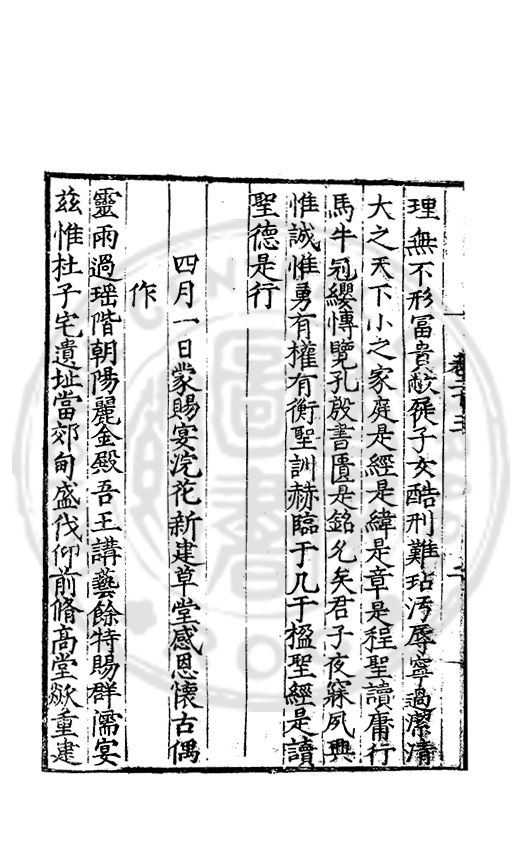 卷二十三
理無不形冨貴敝屣子女酷刑難玷汚辱寧過潔清
大之天下小之家庭是經是緯是章是程聖讀庸行
馬牛冠纓愽覽孔殷書匱是銘允矣君子夜寐夙興
惟誠惟勇有權有衡聖訓赫臨于几于楹聖經是讀
聖德是行
四月一日蒙賜宴浣花新建草堂感恩懷古偶
作
靈雨過瑶階朝陽麗金殿吾王講藝餘特賜群儒宴
兹惟杜子宅遺址當郊甸盛伐仰前脩高堂歘重建